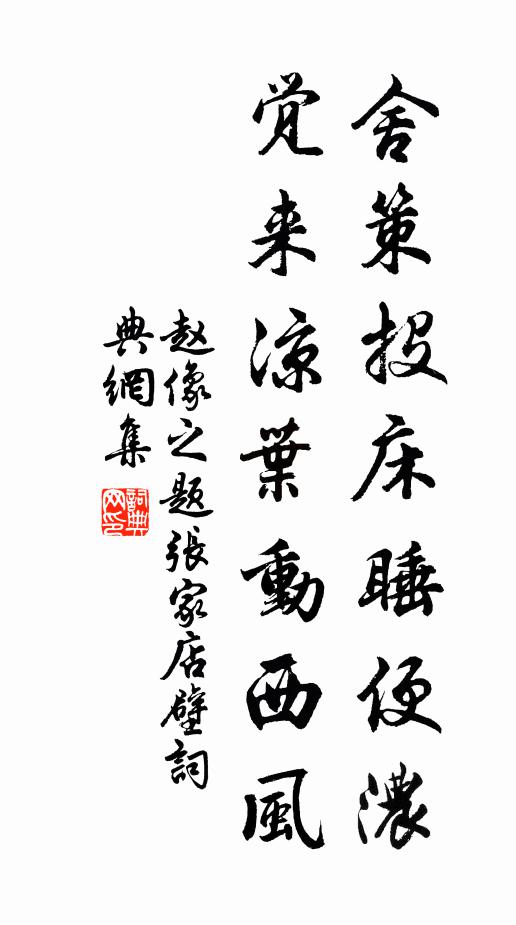 舍策投床睡便濃
觉来涼葉動西風
赵像之题張家店壁詞
典網集
詞典網印